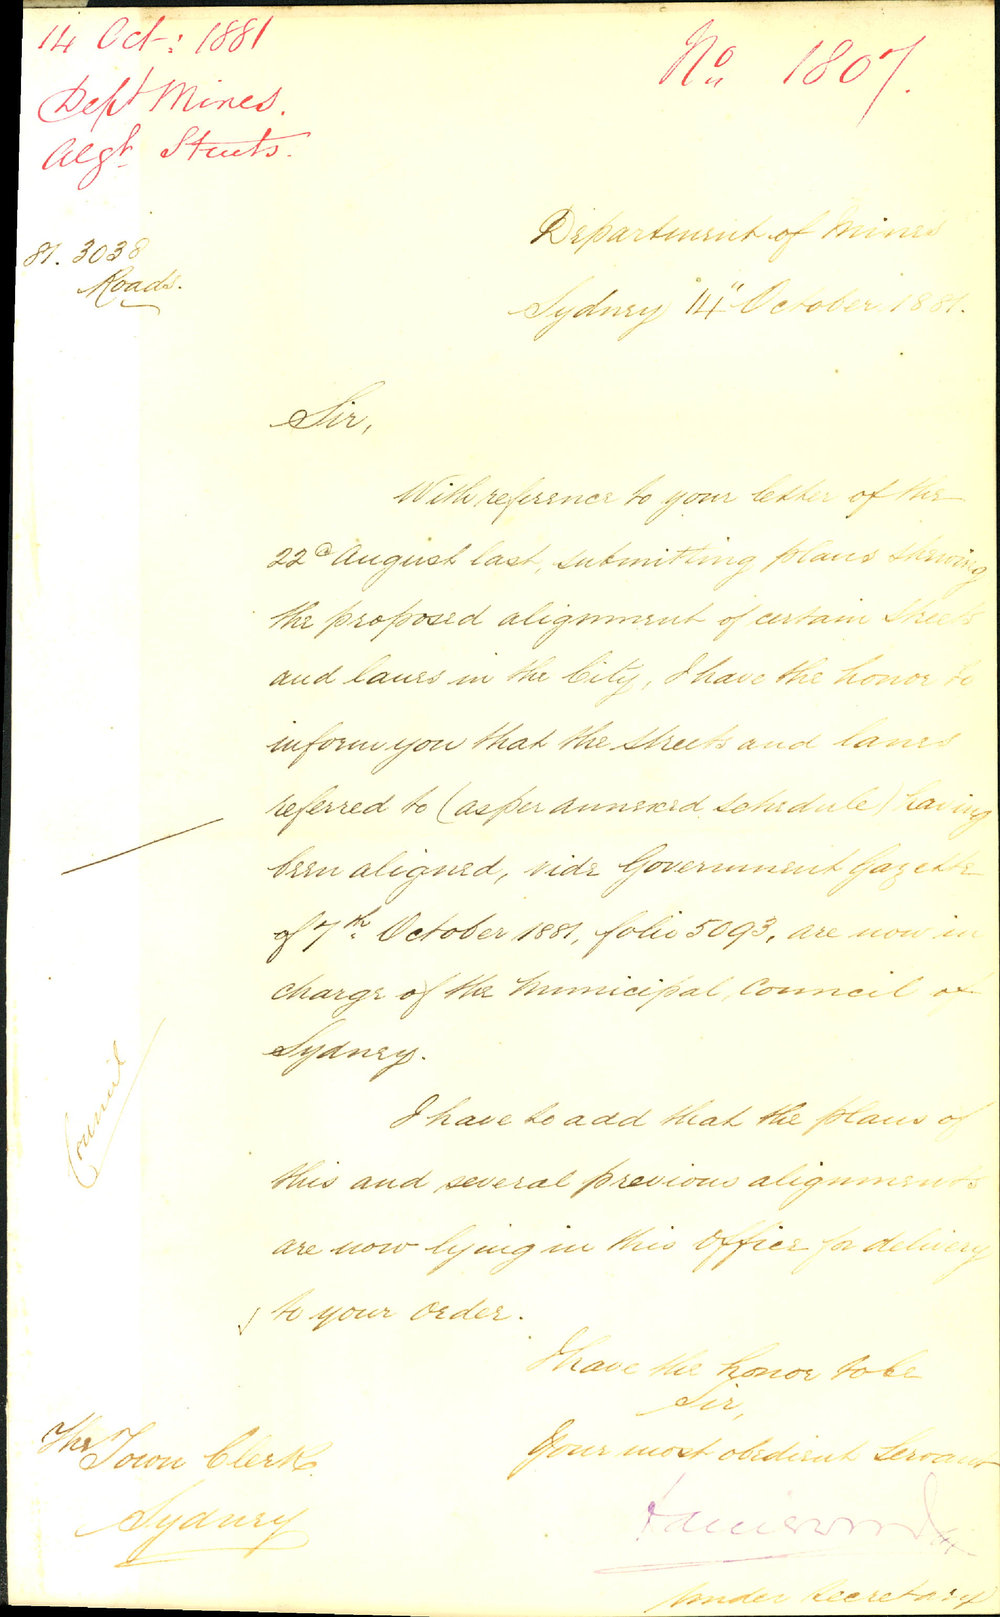 14 Oct: 1881
Dept Mines.
Algt Streets.
No 1807.
81. 3038
Roads.
Department of Mines
Sydney 14" October 1881.
Sir,
With reference to your letter of the
22d August last, submitting plans shewing
the proposed alignment of certain Streets
and lanes in the City, I have the honor to
inform you that the streets and lanes
referred to (as per annexed schedule) having
been aligned, vide Government Gazette
of 7th October 1881, folio 5093, are now in
charge of the Municipal Council of
Sydney.
Council
I have to add that the plans of
this and several previous alignments
are now lying in this Office for delivery
to your order.
I have the honor to be
Sir,
Your most obedient Servant
The Town Clerk
Sydney
Under Secretary